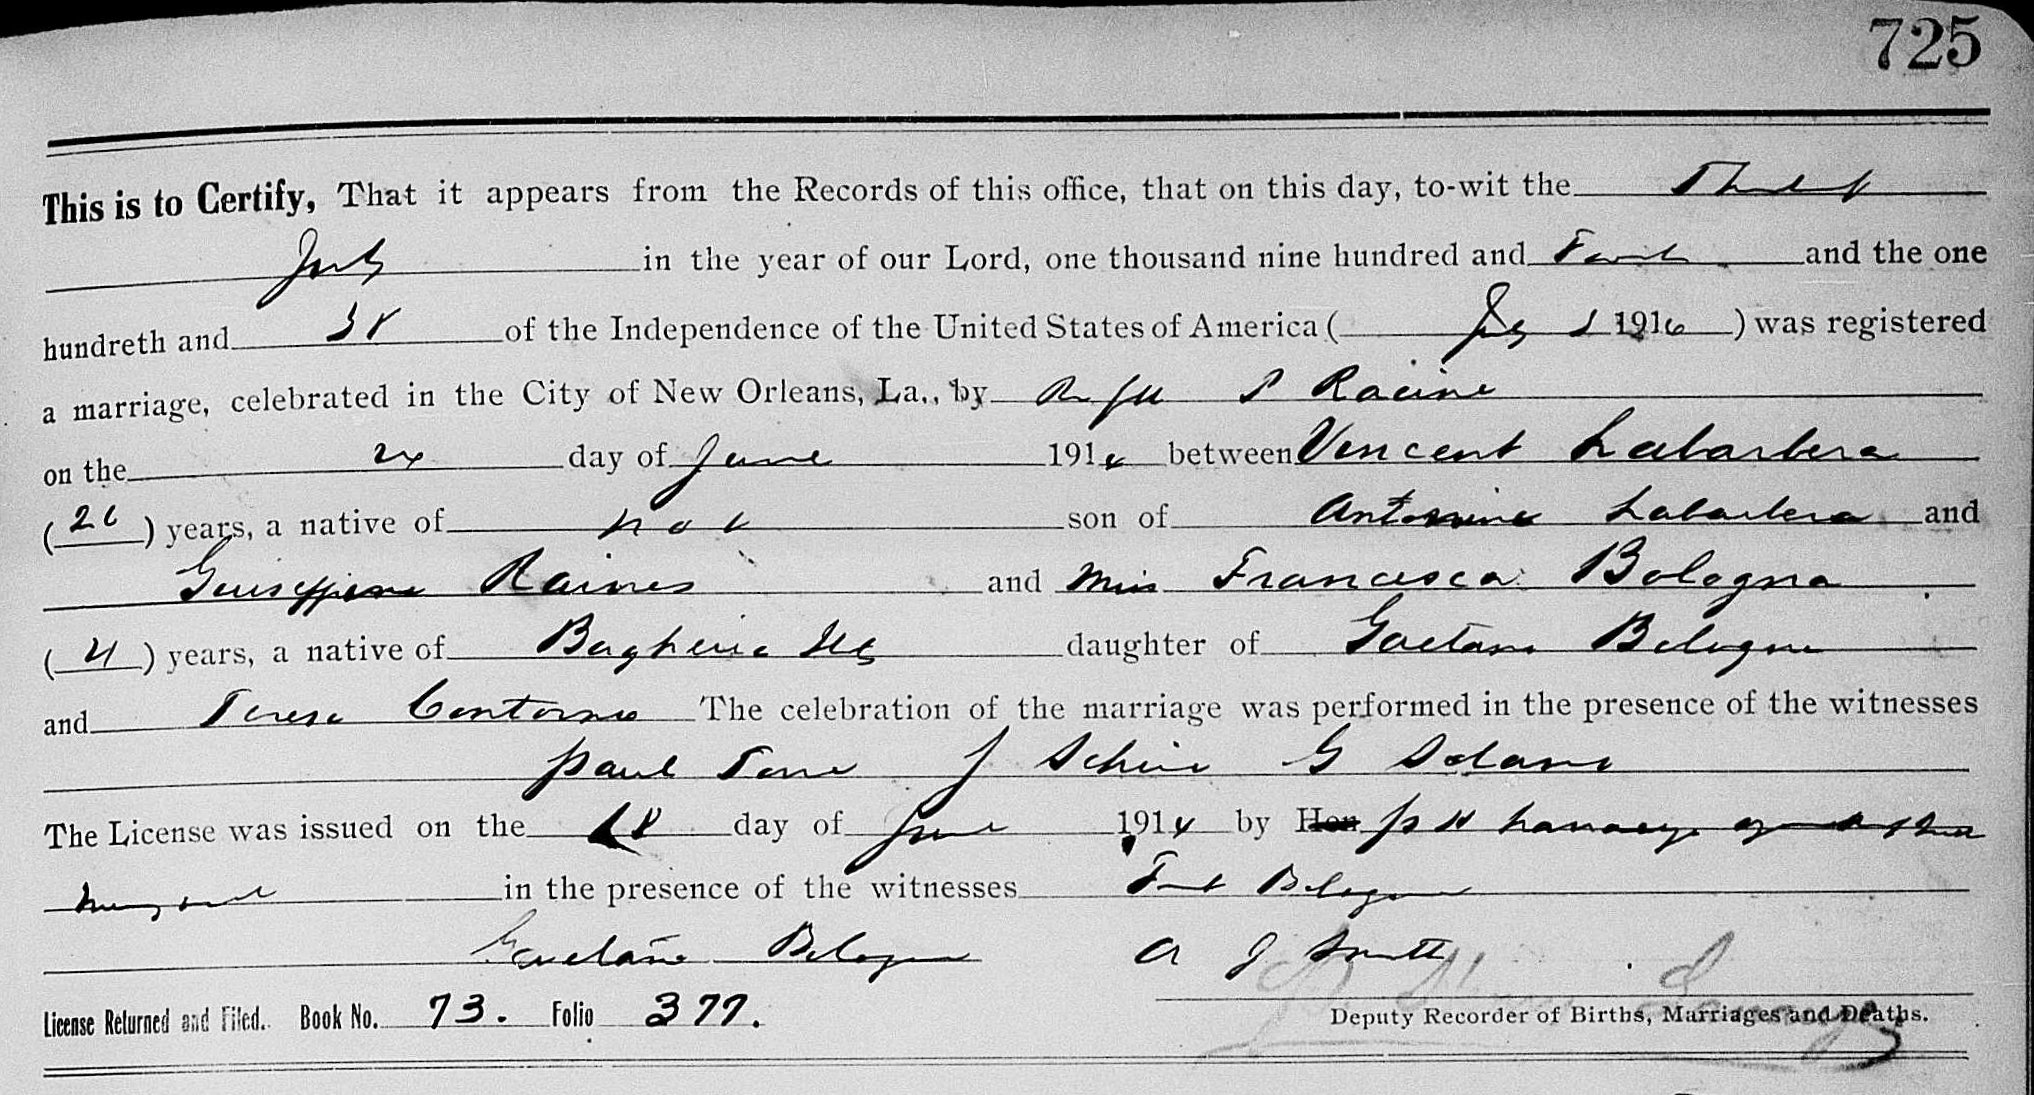 725
This is to Certify, That it appears from the Records of this office, that on this day, to-wit the
July in the year of our Lord, one thousand nine hundred and and the one
hundreth and 38 of the Independence of the United States of America ( July 1 1914 ) was registered
a marriage, celebrated in the City of New Orleans, La., by P Racine
on the 24 day of June 1914 between Vincent Labarbera
( 26 ) years, a native of N O L son of Antonino Labarbera and
Guiseppina Raines and Miss Francesca Bologna
( 21 ) years, a native of Bagheria Itly daughter of Gaetano Bologna
and Teresa Contorno The celebration of the marriage was performed in the presence of the witnesses
Paul Tone J Schiro G Solano
The License was issued on the 18 day of June 1914 by Hon P H Lanauze
in the presence of the witnesses Bologna
Gaetano Bologna A J Smith
License Returned and Filed. Book No. 73. Folio 377.
Deputy Recorder of Births, Marriages and Deaths.